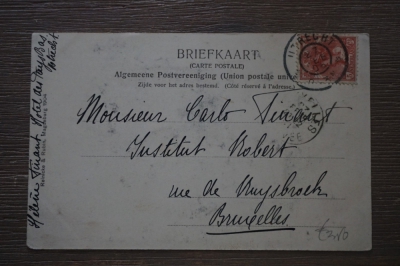 BRIEFKAART
(CARTE POSTALE)
Algemeene Postvereeniging (Union postale
Zijde voor het adres bestemd. (Côté réservé à l'adresse.)
UTRECHT
Monsieur Carlo Tinant
Institut Robert
rue de Ruysbroeck
Bruxelles
Hélène Tinant Hotel des Pays Bas
Utrecht
€2.80